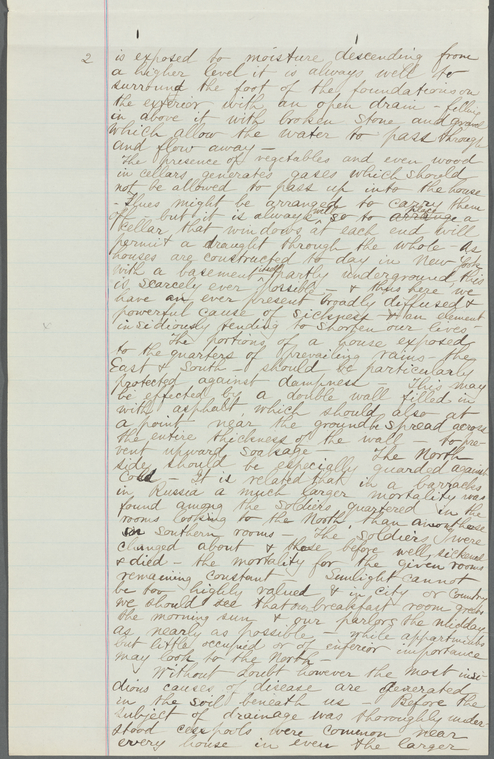 2
is exposed to moisture descending from
a higher level it is always well to
surround the foot of the foundations on
the exterior with an open drain - filling
in above it with broken stone and gravel
which allow the water to pass through
and flow away -
The presence of vegetables and even wood
in cellars, generates gases which should
not be allowed to pass up into the house
- Flues might be arranged to carry them
off but it is always well so to arrange a
cellar, that windows at each end will
permit a draught through the whole - As
houses are constructed to day in New York
with a basement partly underground, this
is scarcely ever possible - & thus here we
have an ever present broadly diffused &
powerful cause of sickness & an element
insidiously tending to shorten our lives -
The portions of a house exposed
to the quarters of prevailing rains - the
East & South - should be particularly
protected against dampness - This may
be effected by a double wall filled in
with asphalt, which should also at
a point near the ground be spread across
the entire thickness of the wall - to pre-
vent upward soakage - The North
side should be especially guarded against
cold - It is related that in a barracks
in Russia a much larger mortality was
found among the soldiers quartered in the
rooms looking to the North, than amongst those
in southern rooms - The soldiers were
changed about & those before well, sickened
& died - the mortality for the given rooms
remaining constant Sunlight cannot
be too highly valued & in city or country
we should see that our breakfast room greets
the morning sun & our parlors the midday
as nearly as possible - while appartments
but little occupied or of inferior importance
may look to the North -
Without doubt however the most insi-
dious causes of disease are generated
in the soil beneath us - Before the
subject of drainage was thoroughly under-
stood cesspools were common near
every house in even the larger